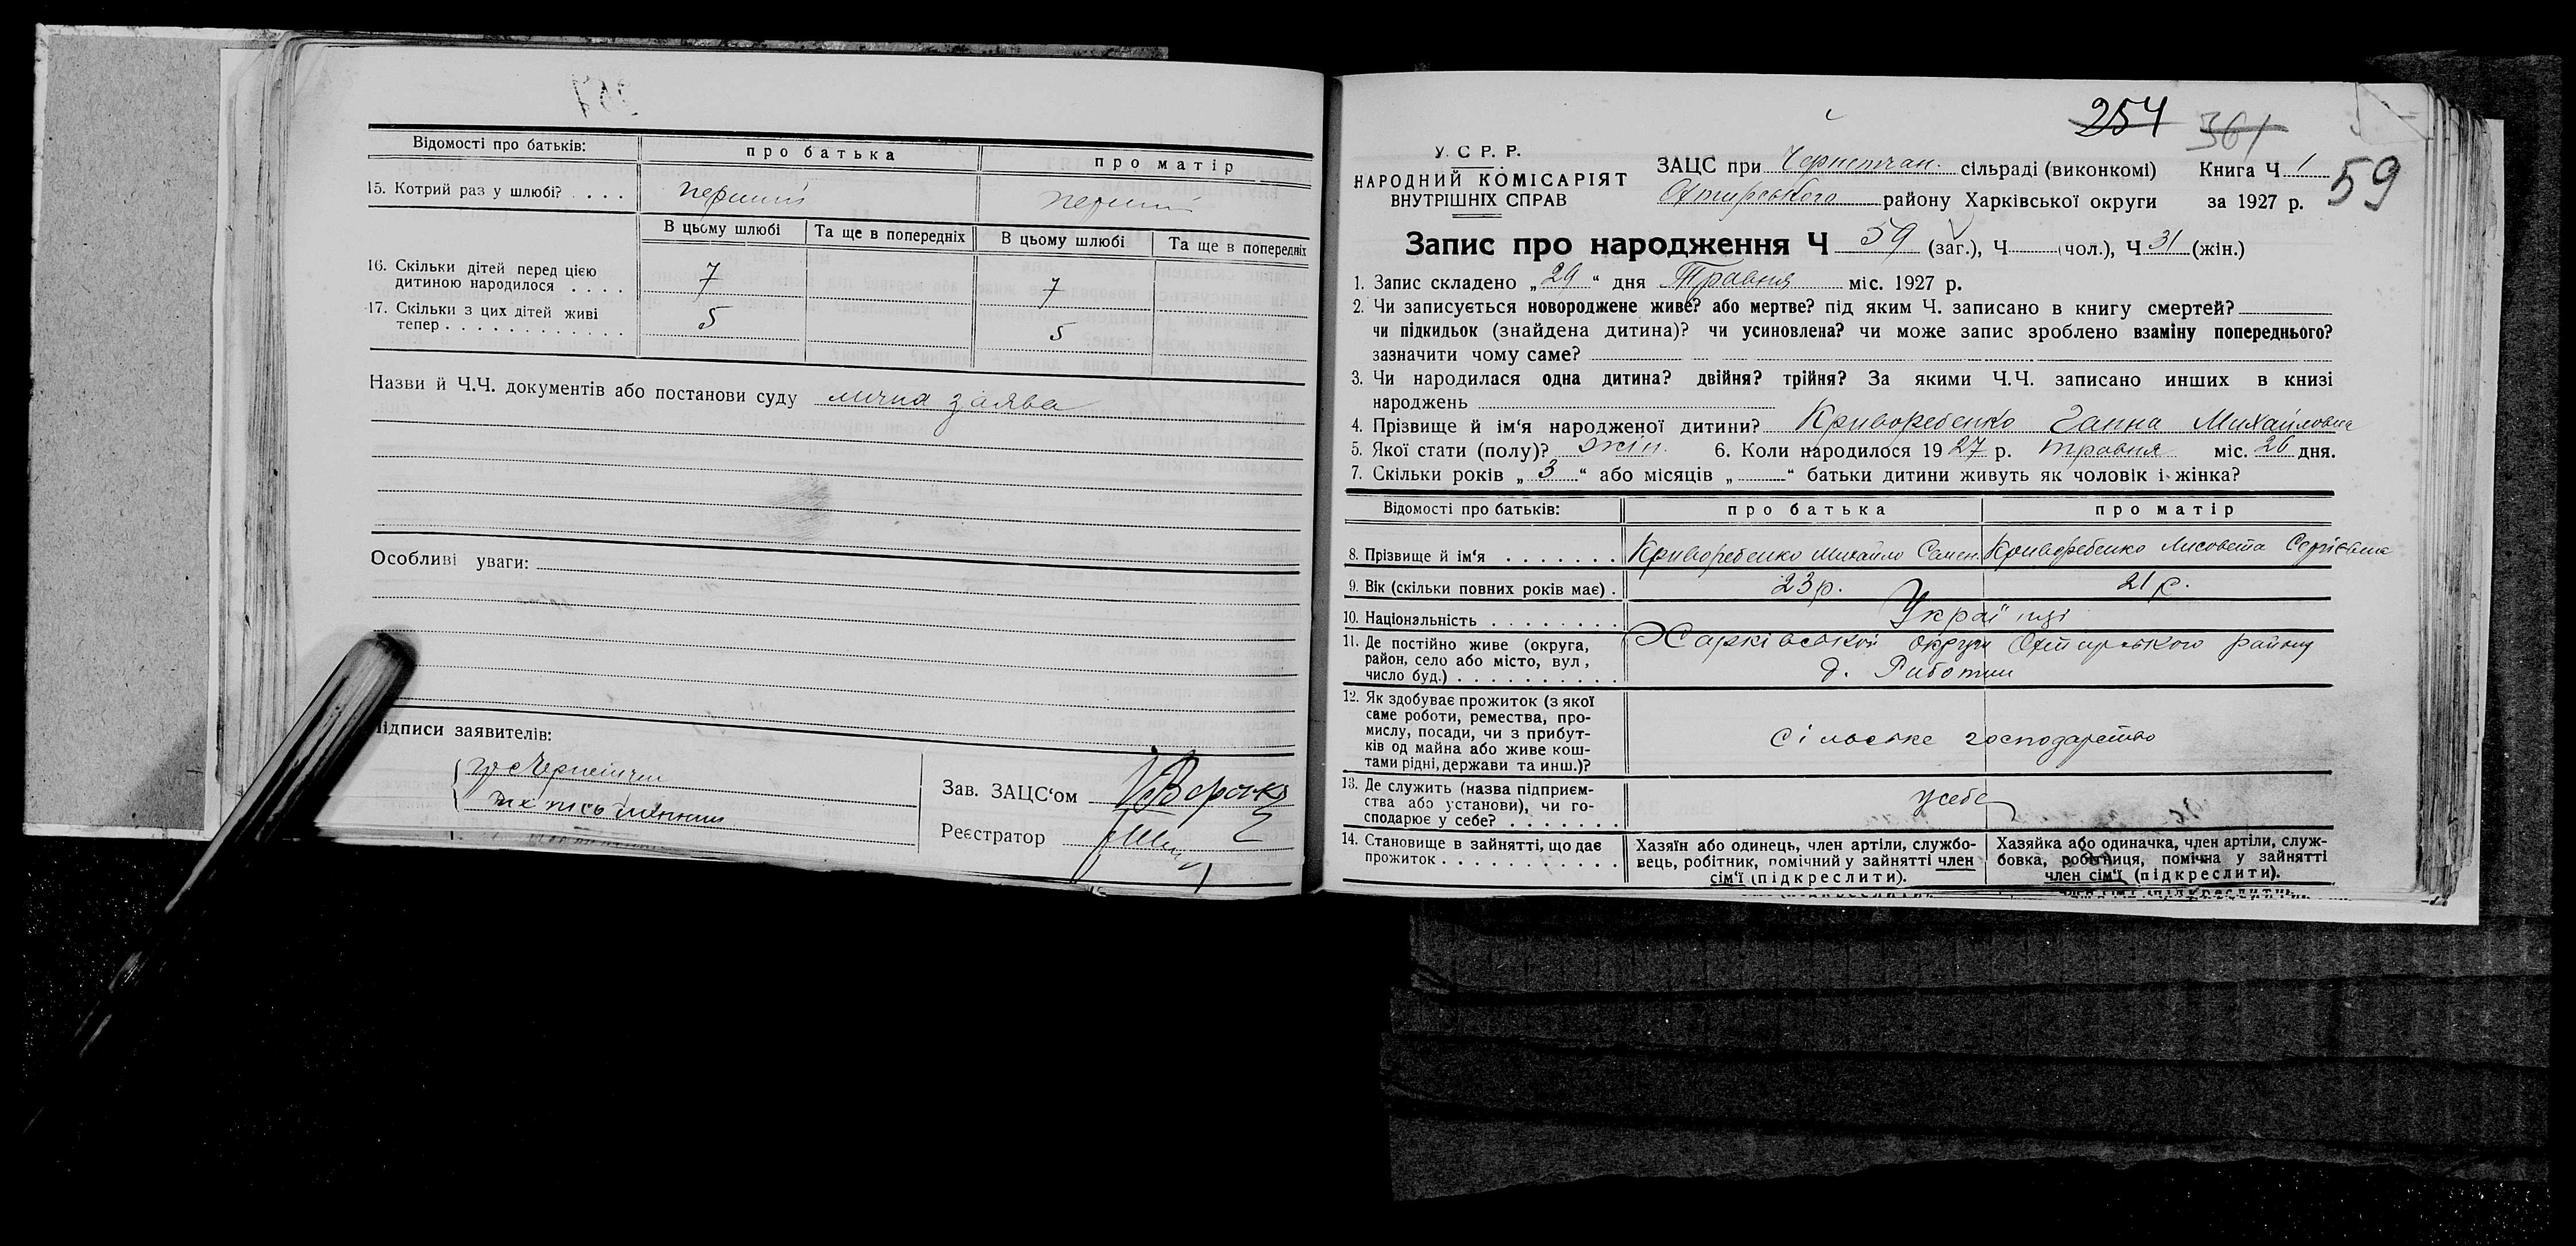 Відомості про батьків: про батька про матір
15. Котрий раз у шлюбі? . . . . перший перший
В цьому шлюбі Та ще в попередніх В цьому шлюбі Та ще в попередніх
16. Скільки дітей перед цією
дитиною народилося . . . . 7 7
17. Скільки з цих дітей живі
тепер . . . . . . . . . . . . . 5 5
Назви й Ч.Ч. документів або постанови суду лична заява
Особливі уваги:
Підписи заявителів:
Зав. ЗАЦС'ом
Реєстратор
254 361
59
У. С. Р. Р.
НАРОДНИЙ КОМІСАРІЯТ
ВНУТРІШНІХ СПРАВ
ЗАЦС при сільраді (виконкомі) Книга Ч 1
району Харківської округи за 1927 р.
Запис про народження Ч 59 (заг.), Ч (чол.), Ч 31 (жін.)
1. Запис складено „ 29 “ дня Травня міс. 1927 р.
2. Чи записується новороджене живе? або мертве? під яким Ч. записано в книгу смертей?
чи підкидьок (знайдена дитина)? чи усиновлена? чи може запис зроблено взаміну попереднього?
зазначити чому саме?
3. Чи народилася одна дитина? двійня? трійня? За якими Ч.Ч. записано инших в книзі
народжень
4. Прізвище й ім'я народженої дитини? Криворебенко Ганна Михайловна
5. Якої стати (полу)? жін. 6. Коли народилося 1927 р. травня міс. 26 дня.
7. Скільки років „ 3 “ або місяців „ “ батьки дитини живуть як чоловік і жінка?
Відомості про батьків: про батька про матір
8. Прізвище й ім'я . . . . . . . Криворебенко Михайло Семен. Криворебенко Лисовета Сергієвна
9. Вік (скільки повних років має) . 23 р. 21 р.
10. Національність . . . . . . . . Українці
11. Де постійно живе (округа, Харківської округи Охтирського району
район, село або місто, вул.,
число буд.) . . . . . . . . . .
12. Як здобуває прожиток (з якої
саме роботи, ремества, про-
мислу, посади, чи з прибут-
ків од майна або живе кош-
тами рідні, держави та инш.)? сільське господарство
13. Де служить (назва підприєм-
ства або установи), чи го-
сподарює у себе? . . . . . . . у себе
14. Становище в зайнятті, що дає
прожиток . . . . . . . . . . . .
Хазяїн або одинець, член артіли, службо-
вець, робітник, помічний у зайнятті член
сім'ї (підкреслити).
Хазяйка або одиначка, член артіли, служ-
бовка, робітниця, помічна у зайнятті
член сім'ї (підкреслити).